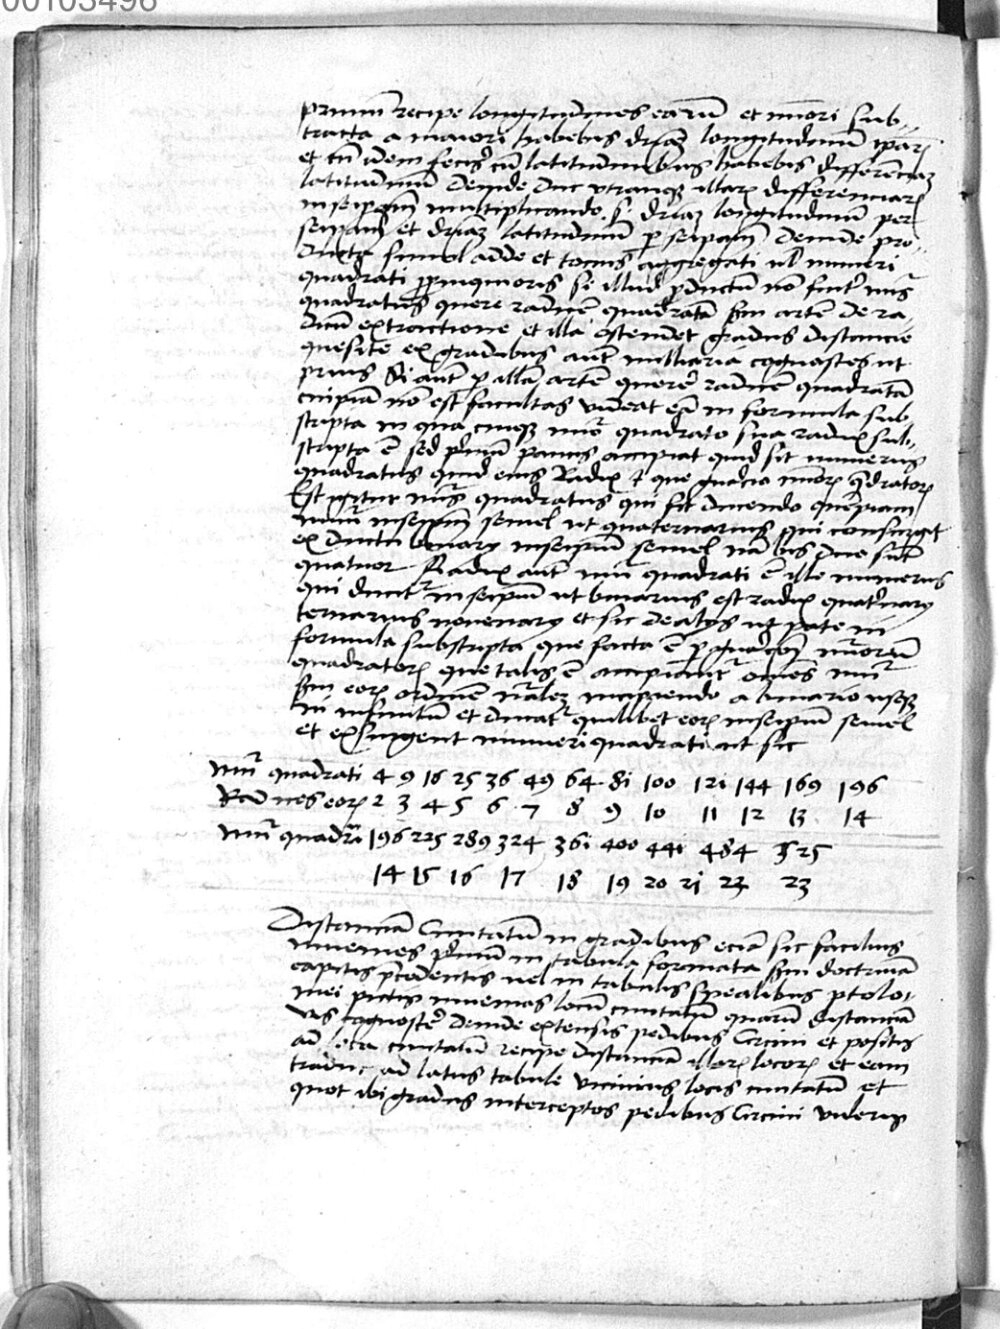 00103496
primum recipe longitudines earum et minori sub
tracta a maiori habebis driam longitudinum ipar
et cum idem fecis cum latitudinibus habebis differenciam
latitudinum Deinde duc utramque illar differenciar
in seipsam multiplicando s driam longitudinum per
seipsam et driam latitudinum p seipsam Deinde pro
ducta simul adde et tocius aggregati vel numeri
quadrati propinquioris si illud productum no fuerit nus
quadratus quere radicem quadratam sm artem de ra
dicum extractione et illa ostendet gradus distancie
quesite ex gradibus aut milliaria cognosces ut
prius Si aut p illam artem querere radicem quadratam
cuipiam no est facultas videat eam in formula sub
scripta in qua cuique nuo quadrato sua radix sub
scripta e sed primum paucis accipiat quid sit numerus
quadratus quid eius Radix et que gnacio nuor quadrator
Est igitur nus quadratus qui fit ducendo quempiam
num in seipsum semel ut quaternarius qui consurgit
ex ductu binary in seipsum semel nam bis duo sunt
quatuor Radix aut nui quadrati e ille numerus
qui ducitur in seipsum ut binarius est radix quaternary
ternarius novenary et sic de alys ut patet in
formula subscripta que facta e p gnacoem nuorum
quadrator que talis e accipiantur omnes nui
sm eor ordinem nalem incipiendo a binario usque
in infinitum et ducatur quilibet eor in seipsum semel
et exsurgent numeri quadrati ut sic
nui quadrati 4 9 16 25 36 49 64 81 100 121 144 169 196
Radices eor 2 3 4 5 6 7 8 9 10 11 12 13 14
nui quadrati 196 225 289 324 361 400 441 484 525
14 15 16 17 18 19 20 21 22 23
Distanciam Civitatum in gradibus eciam sic facilius
invenies primum in tabula formata sm doctrinam
capitis precedentis vel in tabulis specialibus ptolo
mei pictis invenias locum civitatum quarum distanciam
vis cognoscere deinde extensis pedibus Circini et positis
ad loca civitatum recipe distanciam illor locor et eam
traduc ad latus tabule vicinius locis civitatum et
quot ibi gradus interceptos pedibus Circini videris